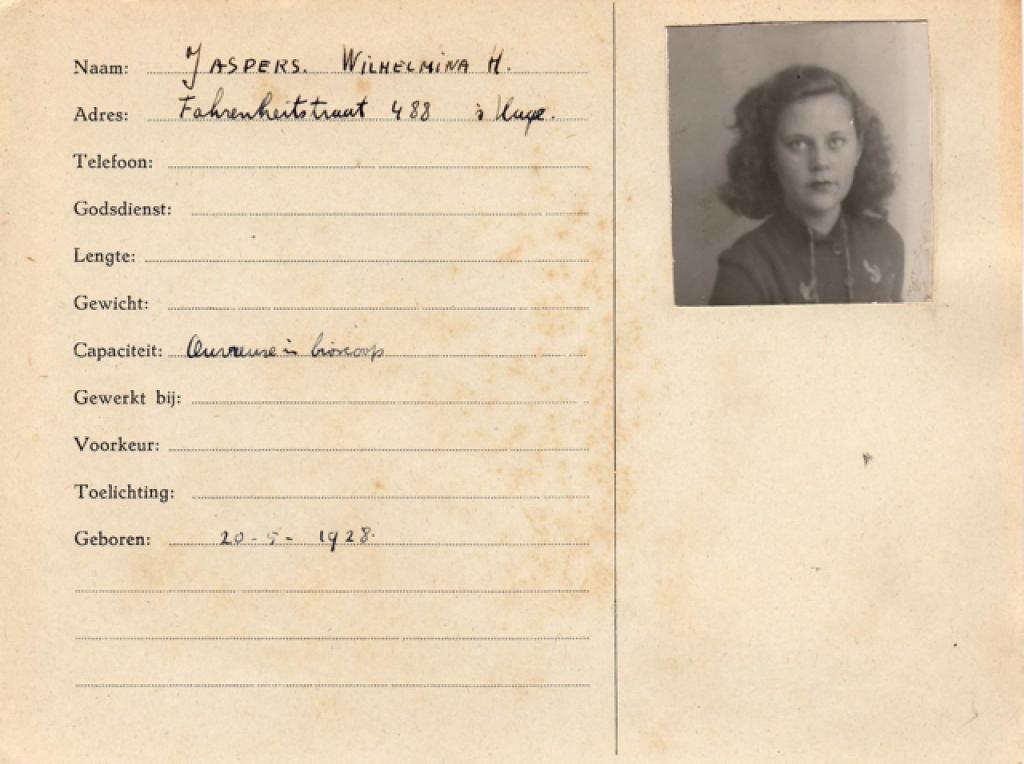 Naam: JASPERS. WILHELMINA H.
Adres: Fahrenheitstraat 488 's Hage.
Telefoon:
Godsdienst:
Lengte:
Gewicht:
Capaciteit: Ouvreuse in bioscoop
Gewerkt bij:
Voorkeur:
Toelichting:
Geboren: 20-5-1928.